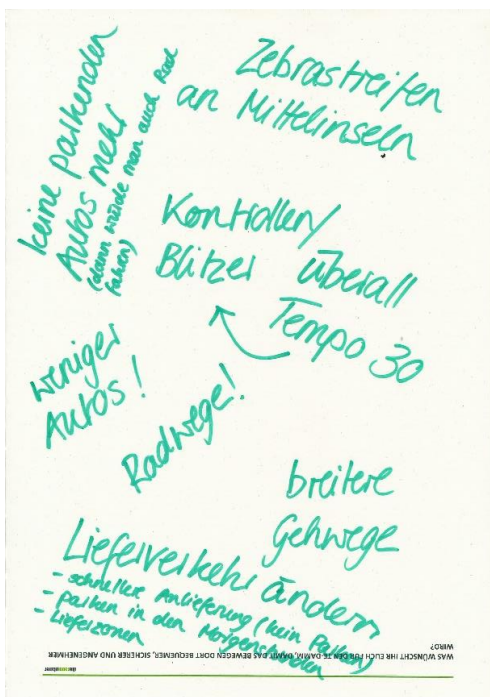 Zebrastreifen
an Mittelinseln
keine parkenden
Autos mehr
(dann würde man auch Rad
fahren)
Kontrollen/
Blitzer
überall
Tempo 30
weniger
Autos!
Radwege!
breitere
Gehwege
Lieferverkehr ändern
- schnellere Anlieferung (kein Parken)
- parken in den Morgenstunden
- Lieferzonen
WAS WÜNSCHT IHR EUCH FÜR DEN TE DAMM, DAMIT DAS BEWEGEN DORT BEQUEMER, SICHERER UND ANGENEHMER
WIRD?